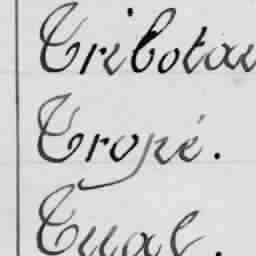 Tribotai
Tropé.
Tual.